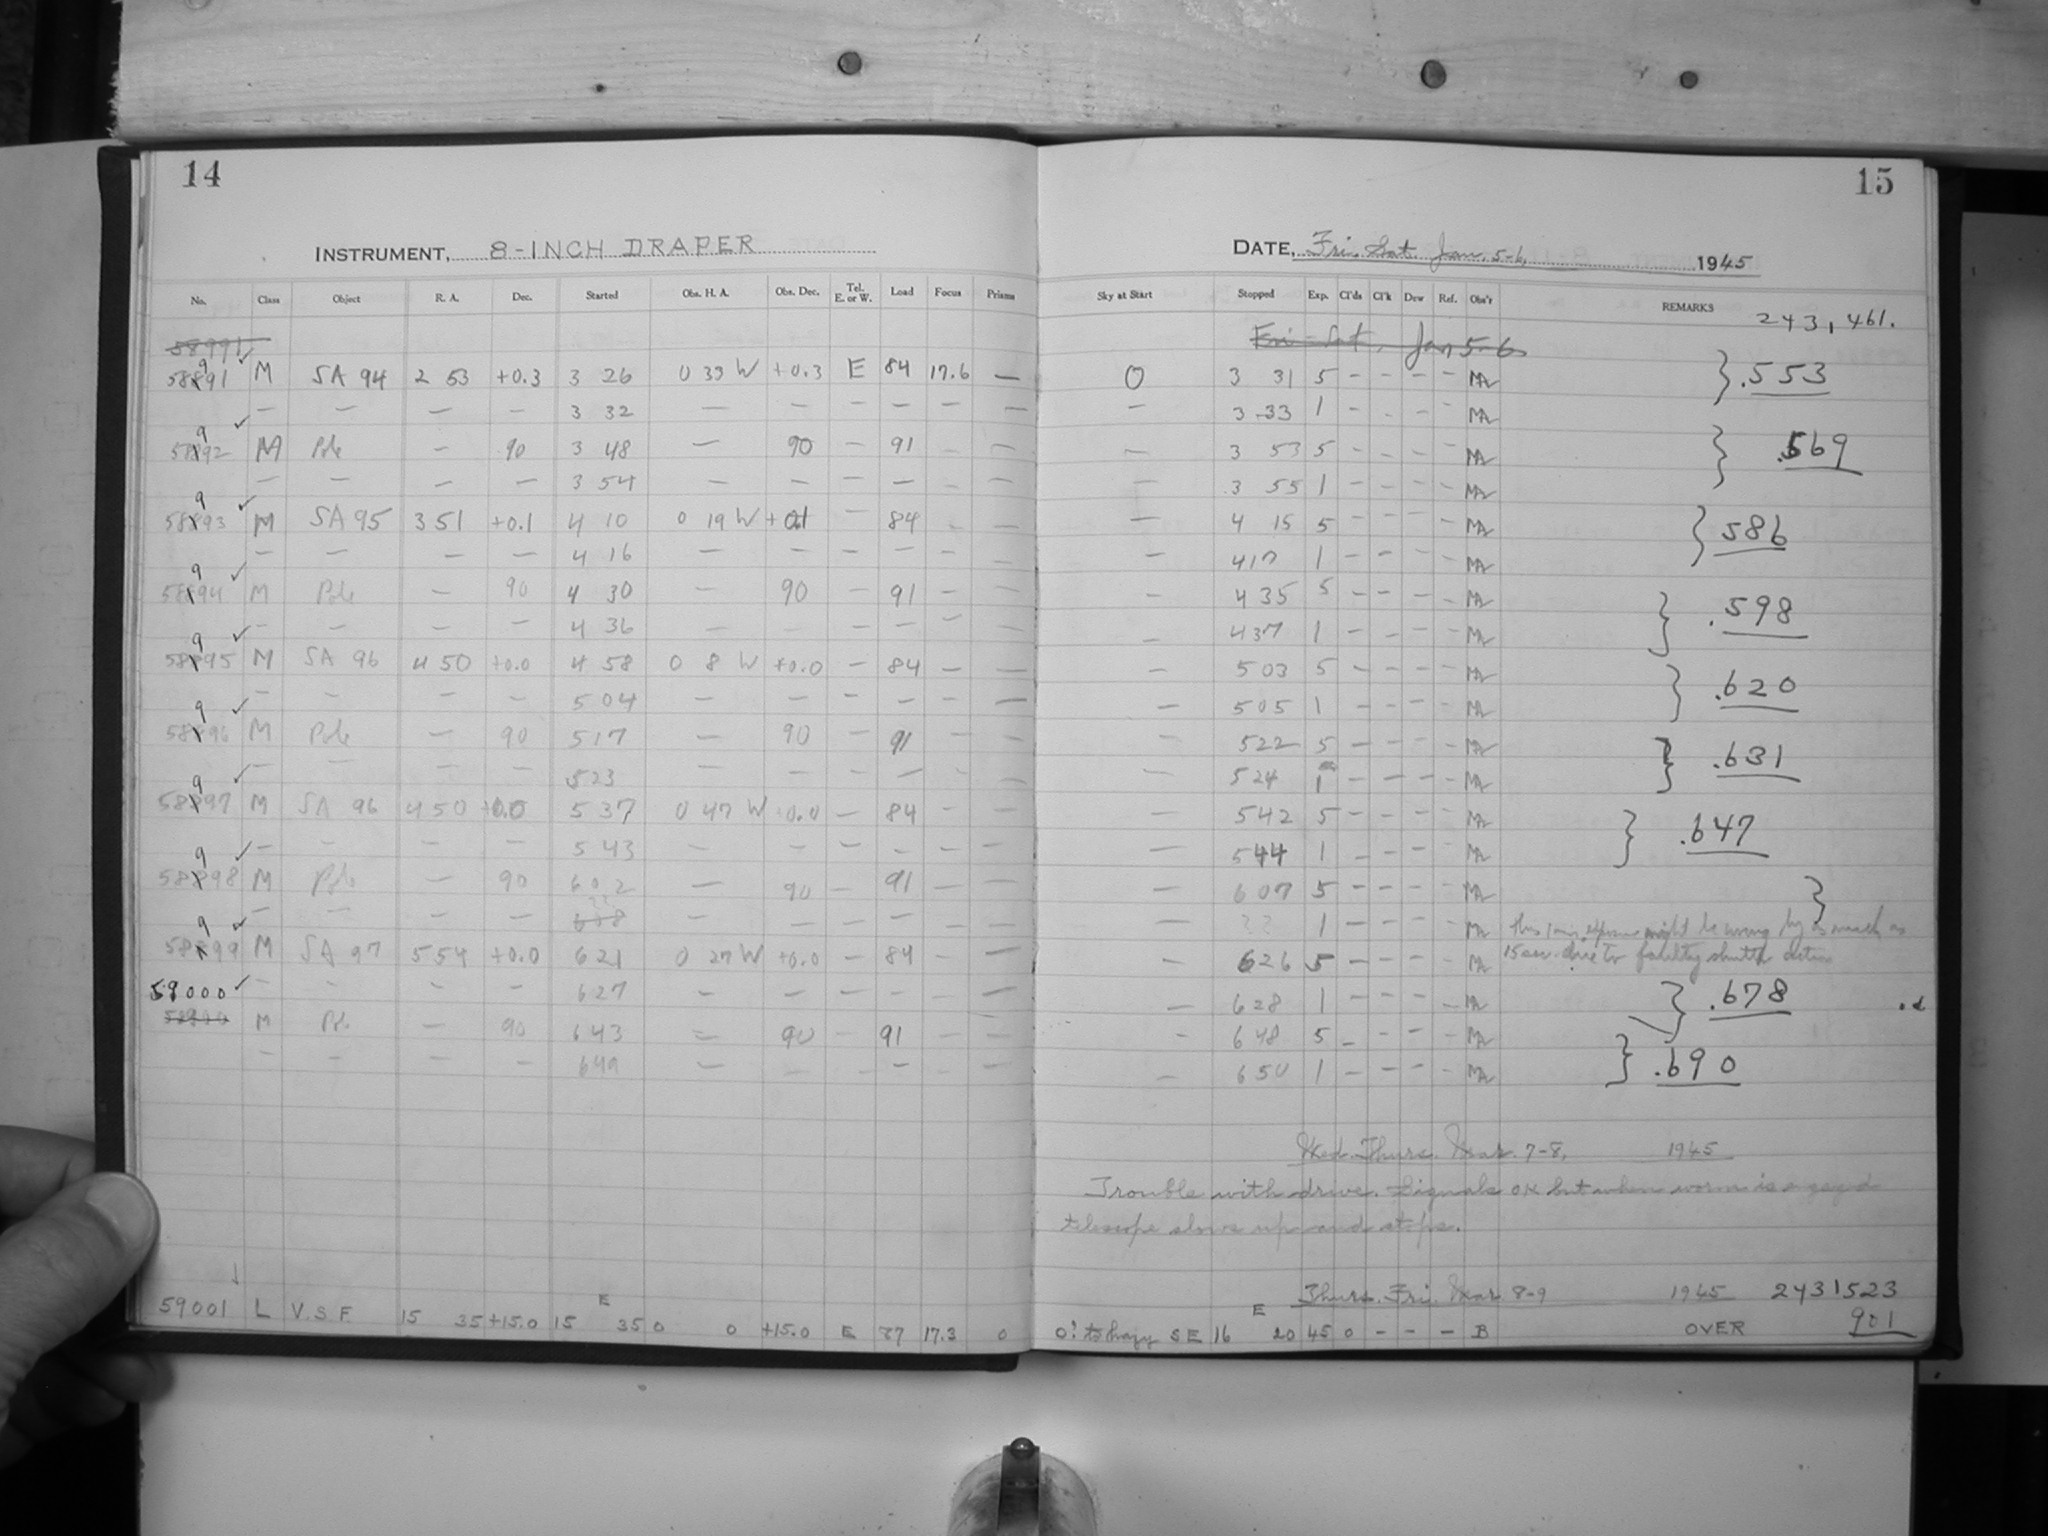 14
15
INSTRUMENT, 8-INCH DRAPER
DATE, Fri. Sat. Jan. 5-6, 1945
No. Class Object R. A. Dec. Started Obs. H. A. Obs. Dec. Tel. E. or W. Load Focus Prisms Sky at Start Stopped Exp. Cl'ds Cl'k Dew Ref. Obs'r REMARKS
243,461.
58991 Fri-Sat, Jan 5-6
58991 ✓ M SA 94 2 53 +0.3 3 26 0 33 W +0.3 E 84 17.6 — 0 3 31 5 - - - - MA } .553
— — — — 3 32 — — — — — — — 3 33 1 - - - - MA
58992 ✓ M Pole — 90 3 48 — 90 — 91 — — — 3 53 5 - - - - MA } .569
— — — — 3 54 — — — — — — — 3 55 1 - - - - MA
58993 ✓ M SA 95 3 51 +0.1 4 10 0 19 W +0.1 — 84 - — — 4 15 5 - - - - MA } 586
— — — — 4 16 — — — — — — — 4 17 1 - - - - MA
58994 ✓ M Pole — 90 4 30 — 90 91 — — — 4 35 5 - - - - MA } .598
— — — — 4 36 — — — — — — — 4 37 1 - - - - MA
58995 ✓ M SA 96 4 50 +0.0 4 58 0 8 W +0.0 — 84 — — — 5 03 5 - - - - MA } .620
— — — — 5 04 — — — — — — — 5 05 1 - - - - MA
58996 ✓ M Pole — 90 5 17 — 90 91 — — — 5 22 5 - - - - MA } .631
— — — — 5 23 — — — — — — — 5 24 1 - - - - MA
58997 ✓ M SA 96 4 50 +0.0 5 37 0 47 W +0.0 — 84 — — — 5 42 5 - - - - MA } .647
— — — — 5 43 — — — — — — — 5 44 1 - - - - MA
58998 ✓ M Pole — 90 6 02 — 90 — 91 — — — 6 07 5 - - - - MA }
— — — — 6 08 ?? — — — — — — ?? 1 - - - - MA This 1 min. exposure might be wrong by as much as
58999 ✓ M SA 97 5 54 +0.0 6 21 0 27 W +0.0 — 84 — — — 6 26 5 - - - - MA 15 sec. due to faulty shutter action
59000 ✓ — — — — 6 27 — — — — — — — 6 28 1 - - - - MA } .678
58900 M Pole — 90 6 43 — 90 — 91 — — - 6 48 5 - - - - MA
— — — — 6 49 — — — — — — — 6 50 1 - - - - MA } .690
Wed. Thurs. Mar. 7-8, 1945
Trouble with drive. Signals OK but when worm is engaged
telescope slows up and stops.
Thurs. Fri. Mar 8-9 1945 2431523
59001 L V.S F 15 35 +15.0 15 35 E 0 0 0 +15.0 E 87 17.3 0 0? to hazy S E 16 20 E 45 0 - - - B OVER 901